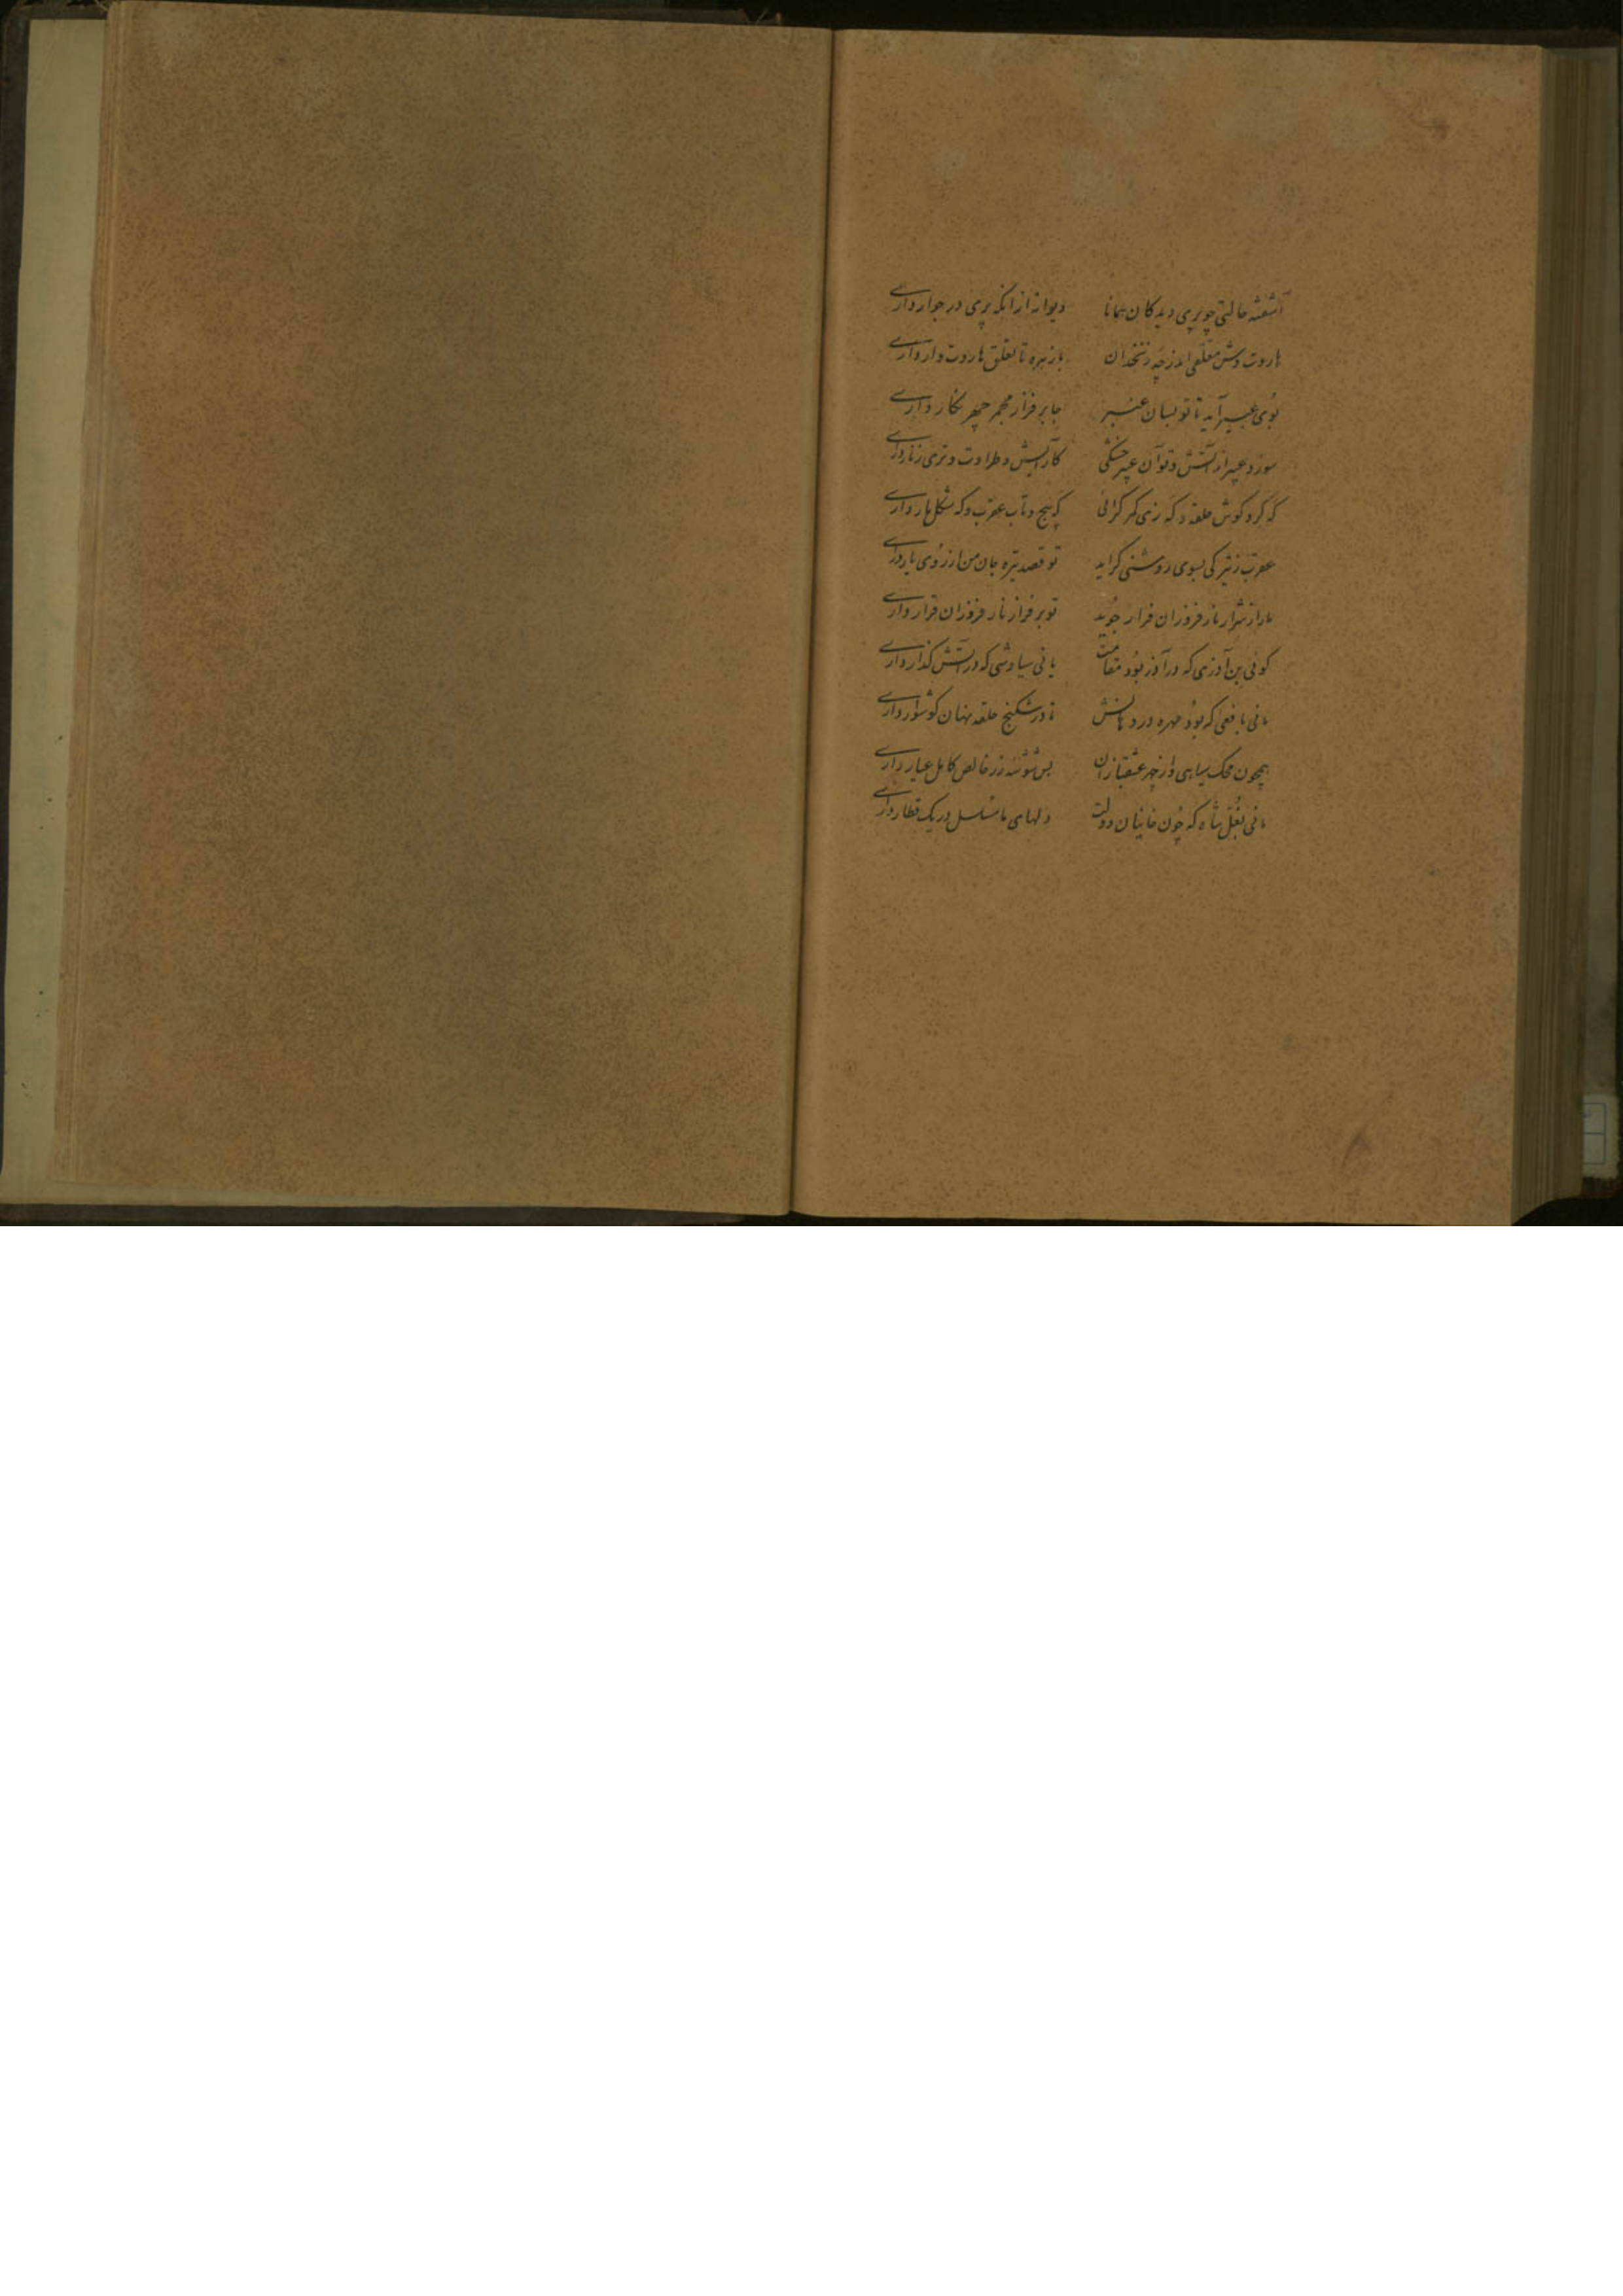 آشفته حالتی چو پری دیدکان همانا دیوانه از انکه پری در جوار داری
هاروت وش معلقی اندر چه زنخدان با زهره تا تعلق هاروت وار داری
بوی عبیر آید تا تو بسان عنبر جا بر فراز مجمر چهر نگار داری
سوزد عبیر از آتش و تو آن عبیر خشکی کارایش و طراوت و تری ز نار داری
که کرد کوش حلقه و که زی کمر کرائی که پیچ و تاب عقرب و که شکل مار داری
عقرب ز تیرکی بسوی روشنی کراید تو قصد تیره جان من از روی یار داری
مار از شرار نار فروزان فرار جوید تو بر فراز نار فروزان قرار داری
کوئی بن آذری که در آذر بود مقامت یا نی سیاوشی که در آتش کذار داری
مانی بافعی که بود مهره در دهانش تا در شکنج حلقه نهان کوشوار داری
همچون محک سیاهی و از چهر عشقبازان بس شوشه زر خالص کامل عیار داری
مانی بغل شاه که چون خانیان دولت دلهای ما مسلسل در یک قطار داری